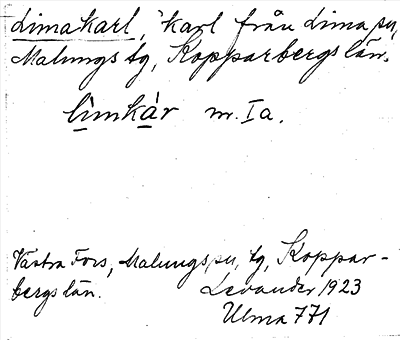 Limakarl, 'karl från Lima sn,
Malungs tg, Kopparbergs län.
li̱mkà̱r m. Ia.
Västra Fors, Malungs sn, tg, Koppar-
bergs län.
Levander 1923
Ulma 771